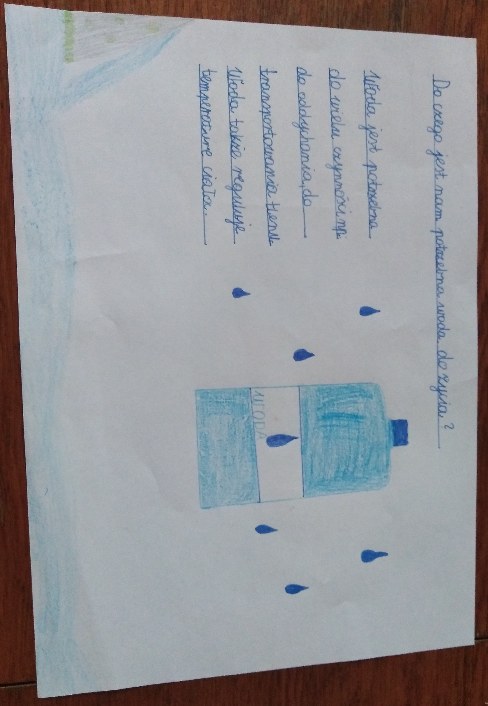 Do czego jest nam potrzebna woda do życia?
Woda jest potrzebna
do wielu czynności np.
do oddychania, do
transportowania tlenu.
Woda także reguluje
temperaturę ciała.
WODA